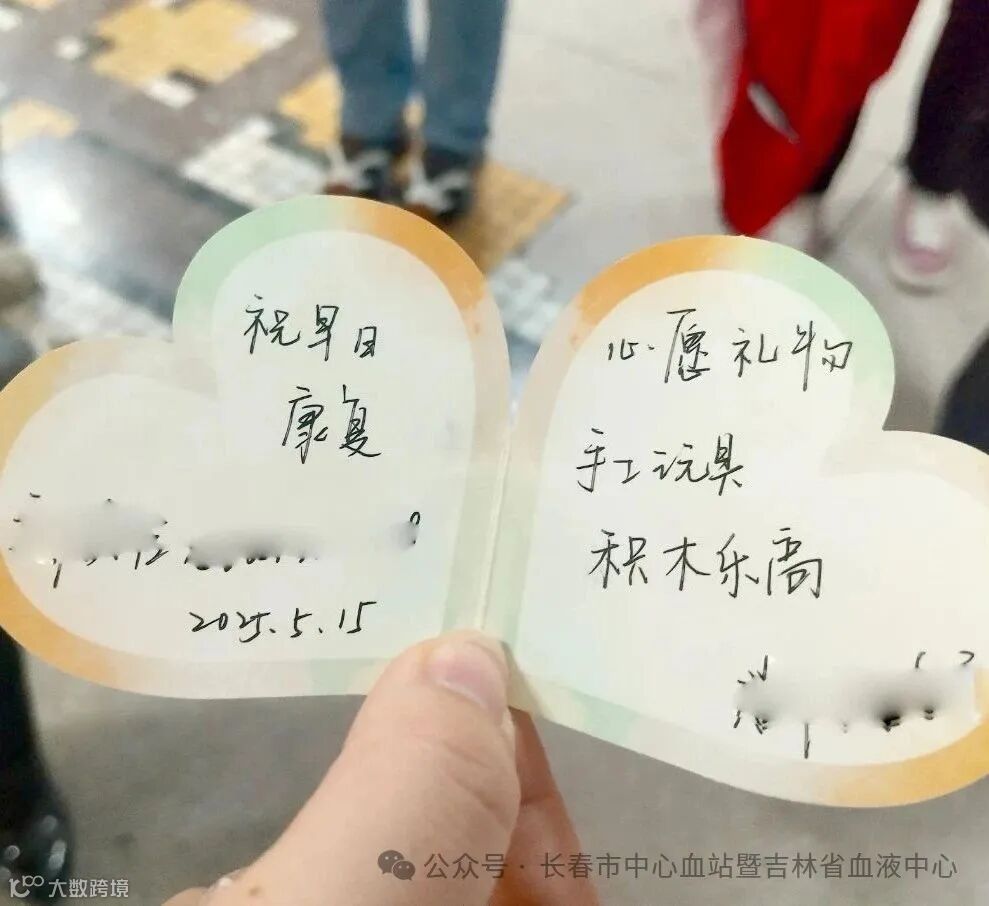 祝早日
康复
2025.5.15
心愿礼物
手工玩具
积木乐高
公众号·长春市中心血站暨吉林省血液中心
大数跨境